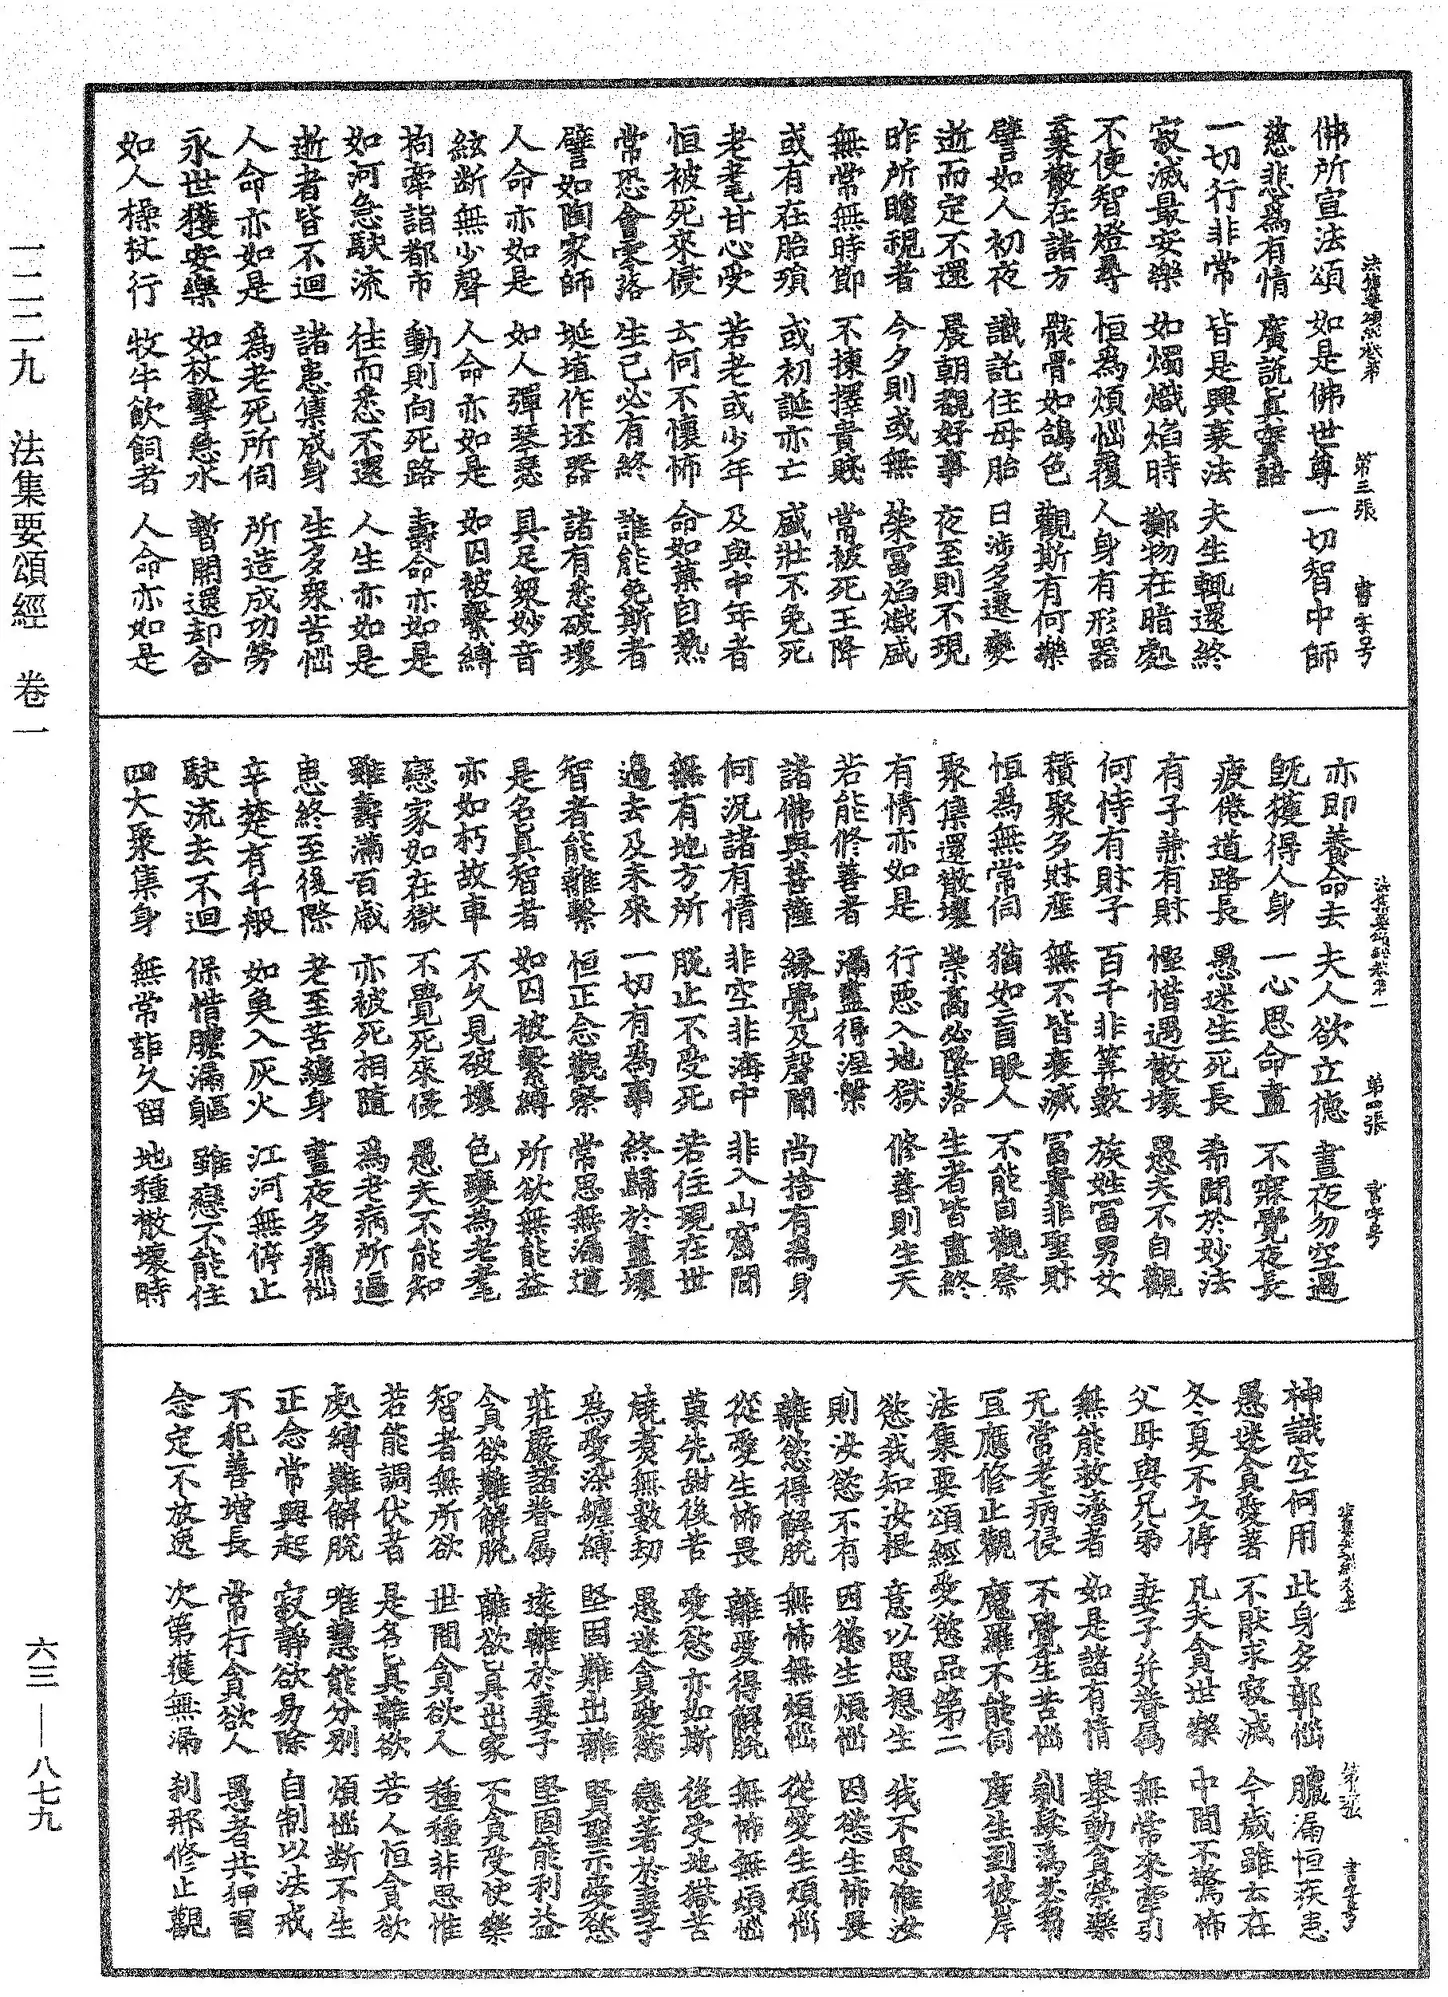 佛所宣法頌　如是佛世尊　一切智中師
慈悲為有情　廣說真實語
一切行非常　皆是興衰法　夫生輒還終
寂滅最安樂　如燭熾焰時　擲物在暗處
不使智燈尋　恒為煩惱覆　人身有形器
棄散在諸方　骸骨如鴿色　觀斯有何樂
譬如人初夜　識託住母胎　日涉多遷變
逝而定不還　晨朝覩好事　夜至則不現
昨所瞻視者　今夕則或無　榮富焰熾盛
無常無時節　不揀擇貴賤　常被死王降
或有在胎殞　或初誕亦亡　盛壯不免死
老耄甘心受　若老或少年　及與中年者
恒被死來侵　云何不懷怖　命如菓自熟
常恐會零落　生已必有終　誰能免斯者
譬如陶家師　埏埴作坯器　諸有悉破壞
人命亦如是　如人彈琴瑟　具足眾妙音
絃斷無少聲　人命亦如是　如囚被繫縛
拘牽詣都市　動則向死路　壽命亦如是
如河急駛流　往而悉不還　人生亦如是
逝者皆不迴　諸患集成身　生多眾苦惱
人命亦如是　為老死所伺　所造成功勞
永世獲安樂　如杖擊急水　暫開還却合
如人操杖行　牧牛飲飼者　人命亦如是
法集要頌經卷第　第三張　書字号
亦即養命去　夫人欲立德　晝夜勿空過
既獲得人身　一心思命盡　不寐覺夜長
疲倦道路長　愚迷生死長　希聞於妙法
有子兼有財　慳惜遇散壞　愚夫不自觀
何恃有財子　百千非筭數　族姓富男女
積聚多財產　無不皆衰滅　富貴非聖財
恒為無常伺　猶如盲眼人　不能自觀察
聚集還散壞　崇高必墜落　生者皆盡終
有情亦如是　行惡入地獄　修善則生天
若能修善者　漏盡得涅槃
諸佛與菩薩　緣覺及聲聞　尚捨有為身
何況諸有情　非空非海中　非入山窟間
無有地方所　脫止不受死　若住現在世
過去及未來　一切有為事　終歸於盡壞
智者能離繫　恒正念觀察　常思無漏道
是名真智者　如囚被繫縛　所欲無能益
亦如朽故車　不久見破壞　色變為老耄
戀家如在獄　不覺死來侵　愚夫不能知
雖壽滿百歲　亦被死相隨　為老病所逼
患終至後際　老至苦纏身　晝夜多痛惱
辛楚有千般　如魚入灰火　江河無停止
駛流去不迴　保惜膿漏軀　雖戀不能住
四大聚集身　無常詎久留　地種散壞時
法集要頌經卷第一　第四張　書字号
神識空何用　此身多鄣惱　膿漏恒疾患
愚迷貪愛著　不猒求寂滅　今歲雖云在
冬夏不久停　凡夫貪世樂　中間不驚怖
父母與兄弟　妻子并眷屬　無常來牽引
無能救濟者　如是諸有情　舉動貪榮樂
无常老病侵　不覺生苦惱　剃髮為苾芻
宜應修止觀　魔羅不能伺　度生到彼岸
法集要頌經愛慾品第二
慾我知汝根　意以思想生　我不思惟汝
則汝慾不有　因慾生煩惱　因慾生怖畏
離慾得解脫　無怖無煩惱　從愛生煩惱
從愛生怖畏　離愛得解脫　無怖無煩惱
菓先甜後苦　愛慾亦如斯　後受地獄苦
燒煑無數劫　愚迷貪愛慾　戀著於妻子
為愛染纏縛　堅固難出離　賢聖示愛慾
莊嚴諸眷屬　遠離於妻子　堅固能利益
貪欲難解脫　離欲真出家　不貪受快樂
智者無所欲　世間貪欲人　種種非思惟
若能調伏者　是名真離欲　若人恒貪欲
處縛難解脫　唯慧能分別　煩惱斷不生
正念常興起　寂靜欲易除　自制以法戒
不犯善增長　常行貪欲人　愚者共狎習
念定不放逸　次第獲無漏　剎那修止觀
第五張　書字号
一一二九　法集要頌經　卷一
六三——八七九